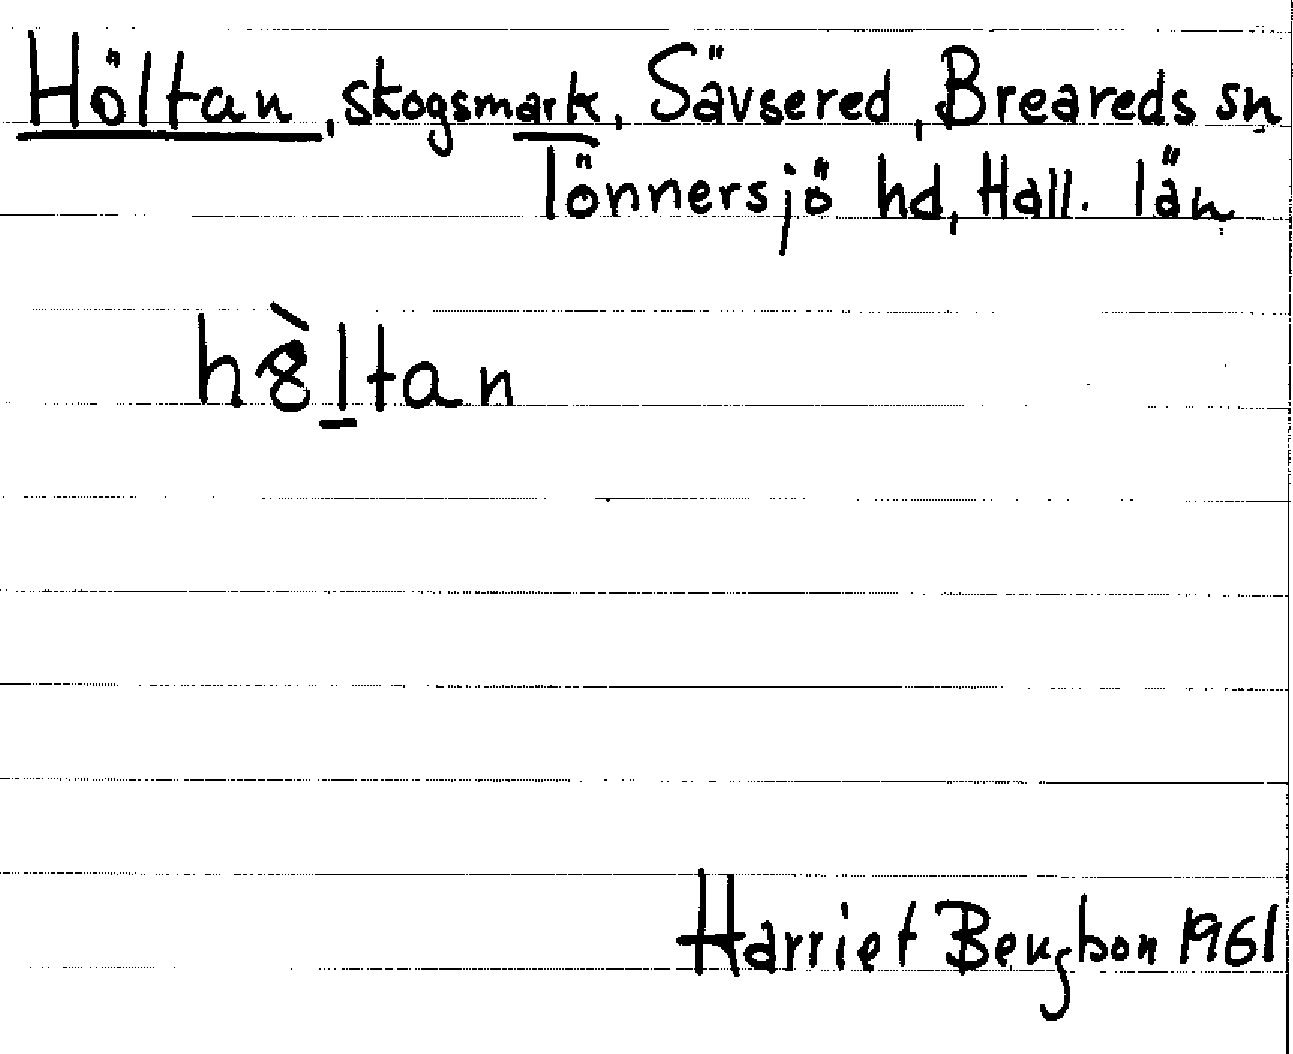 Höltan, skogsmark, Sävsered, Breareds sn
Tönnersjö hd, Hall. län
Harriet 1961